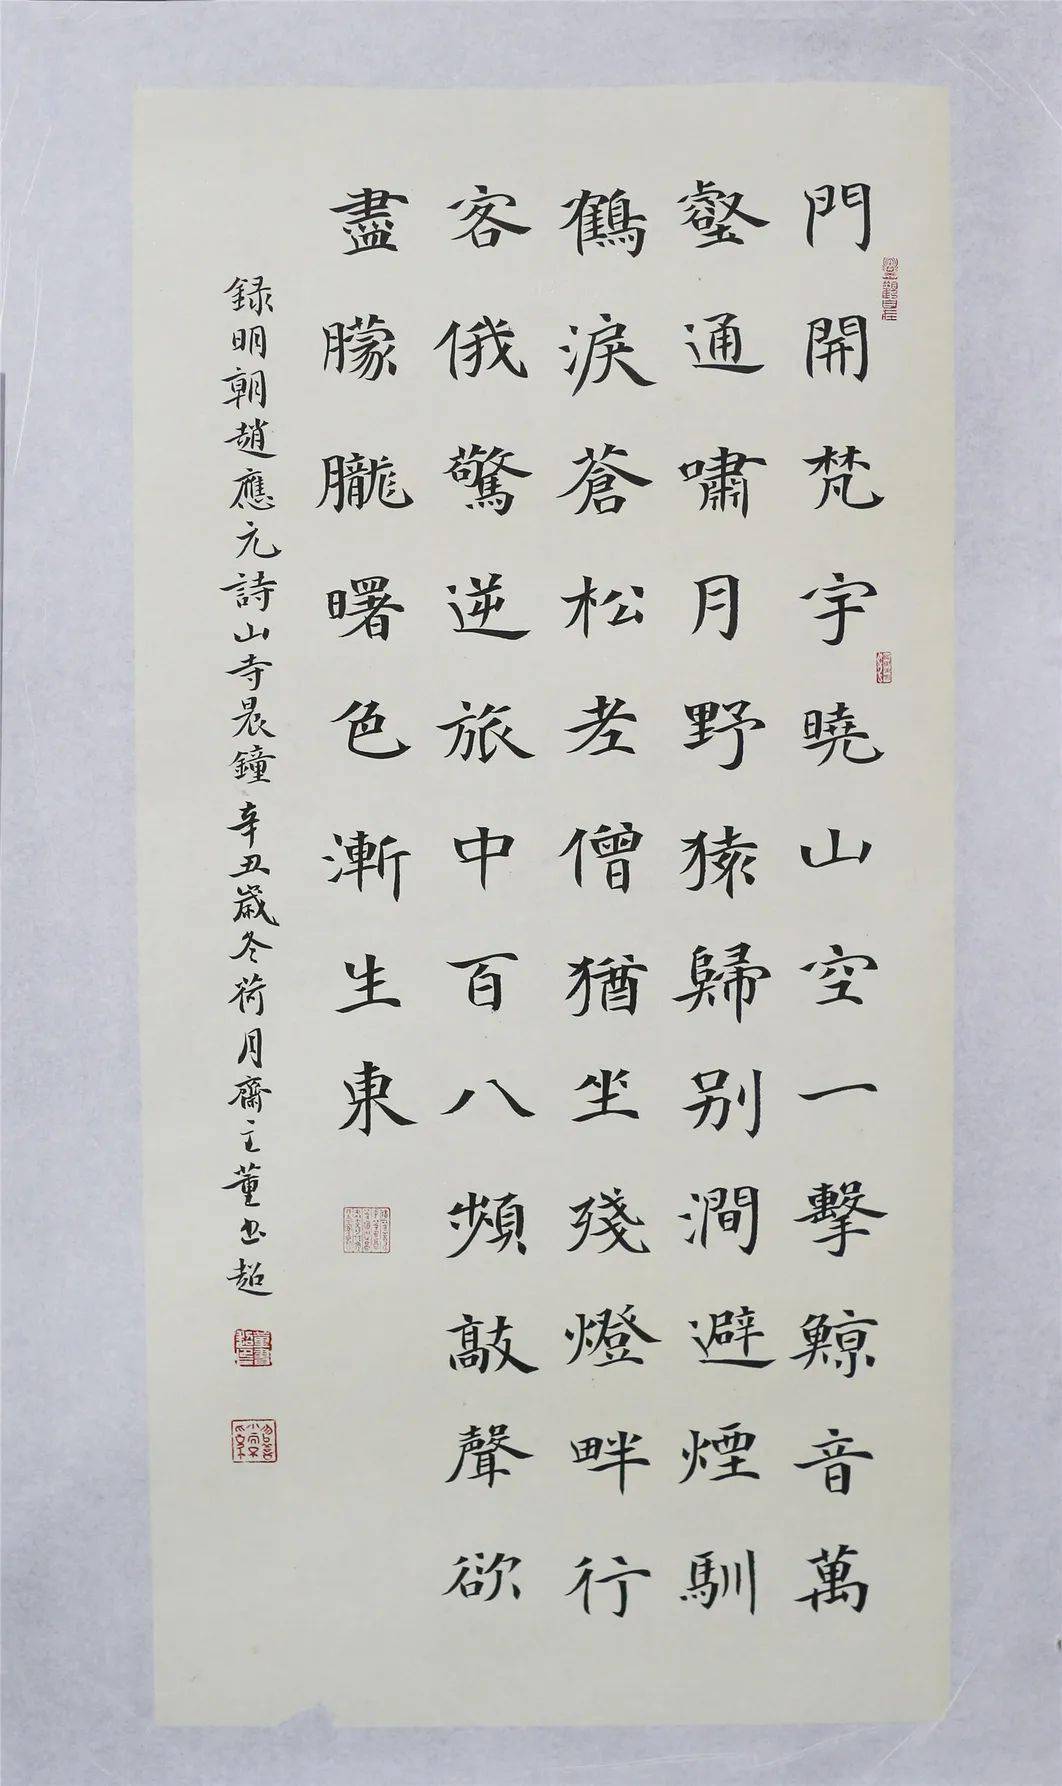 門開梵宇曉山空一擊鯨音萬
壑通嘯月野猿歸別澗避煙馴
鶴淚蒼松老僧猶坐殘燈畔行
客俄驚逆旅中百八頻敲聲欲
盡朦朧曙色漸生東
録明朝趙應元詩山寺晨鐘辛丑歲冬荷月齋主董書超